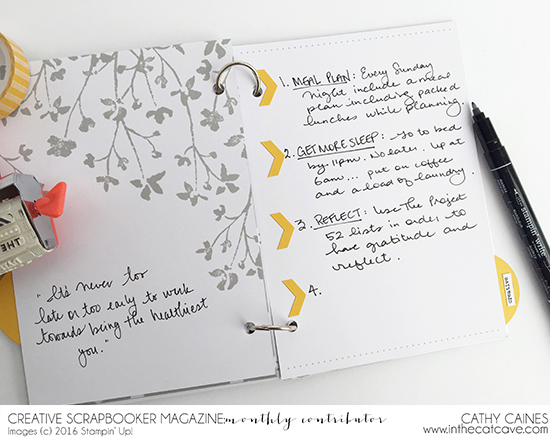 "It's never too
late or too early to work
towards being the healthiest
you."
1. MEAL PLAN: Every Sunday
night include a meal
plan including packed
lunches while planning.
2. GET MORE SLEEP: Go to bed
by 11pm. No later. Up at
6am... put on coffee
and a load of laundry.
3. REFLECT: Use The Project
52 lists in order to
have gratitude and
reflect.
4.
THE
stampin' write
CREATIVE SCRAPBOOKER MAGAZINE: monthly contributor
CATHY CAINES
Images (c) 2016 Stampin' Up!
www.inthecatcave.com